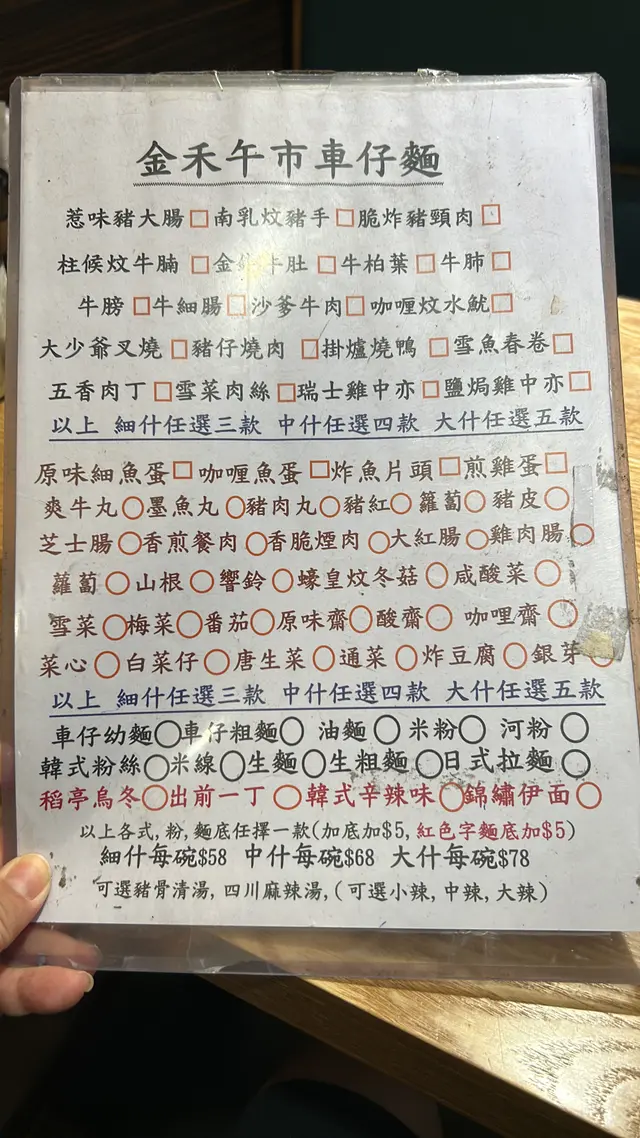 金禾午市車仔麵
惹味豬大腸□南乳炆豬手□脆炸豬頸肉□
柱候炆牛腩 □金 牛肚 □牛柏葉 □牛肺□
牛膀 □牛細腸□沙爹牛肉□咖喱炆水魷□
大少爺叉燒 □豬仔燒肉 □掛爐燒鴨 □雪魚春卷□
五香肉丁 □雪菜肉絲□瑞士雞中亦□鹽焗雞中亦□
以上 細什任選三款 中什任選四款 大什任選五款
原味細魚蛋□ 咖喱魚蛋 □炸魚片頭□煎雞蛋□
爽牛丸○墨魚丸○豬肉丸○豬紅○ 蘿蔔○ 豬皮○
芝士腸○香煎餐肉○香脆煙肉○大紅腸○雞肉腸○
蘿蔔○山根○響鈴○蠔皇炆冬菇○咸酸菜○
雪菜○梅菜○番茄○原味齋○酸齋○ 咖哩齋○
菜心○白菜仔○唐生菜○通菜○炸豆腐○銀芽○
以上 細什任選三款 中什任選四款 大什任選五款
車仔幼麵○車仔粗麵○ 油麵○ 米粉○ 河粉○
韓式粉絲○米線○生麵○生粗麵○日式拉麵○
稻亭烏冬○出前一丁○韓式辛辣味○錦繡伊面○
以上各式,粉,麵底任擇一款(加底加$5,紅色字麵底加$5)
細什每碗$58 中什每碗$68 大什每碗$78
可選豬骨清湯,四川麻辣湯,(可選小辣,中辣,大辣)